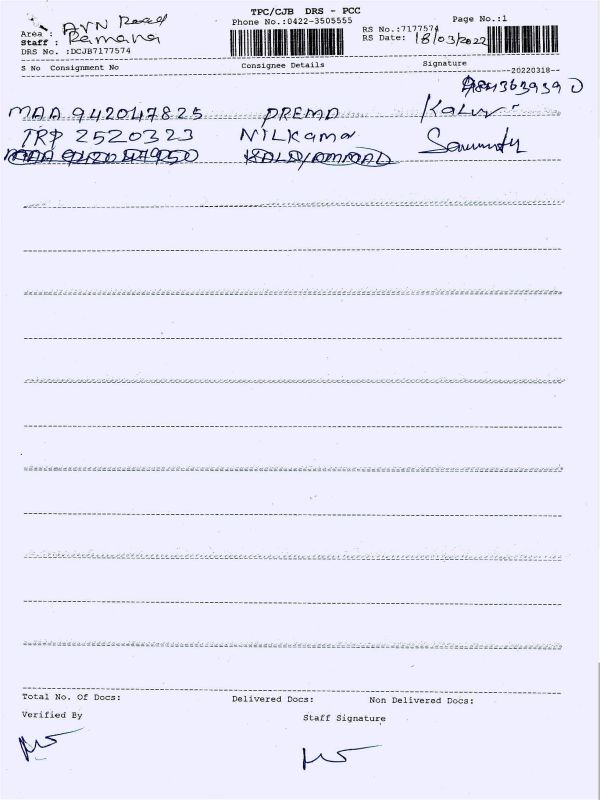 TPC/CJB DRS - PCC
Phone No.:0422-3505555 Page No.:1
Area : AVN Road RS No.:7177574
Staff : Ramana RS Date: 18/03/2022
DRS No. :DCJB7177574
S No Consignment No Consignee Details Signature
--20220318--
9843639390
MAA 942047825 PREMA
TRP 2520323 NILKamal
Total No. Of Docs: Delivered Docs: Non Delivered Docs:
Verified By Staff Signature